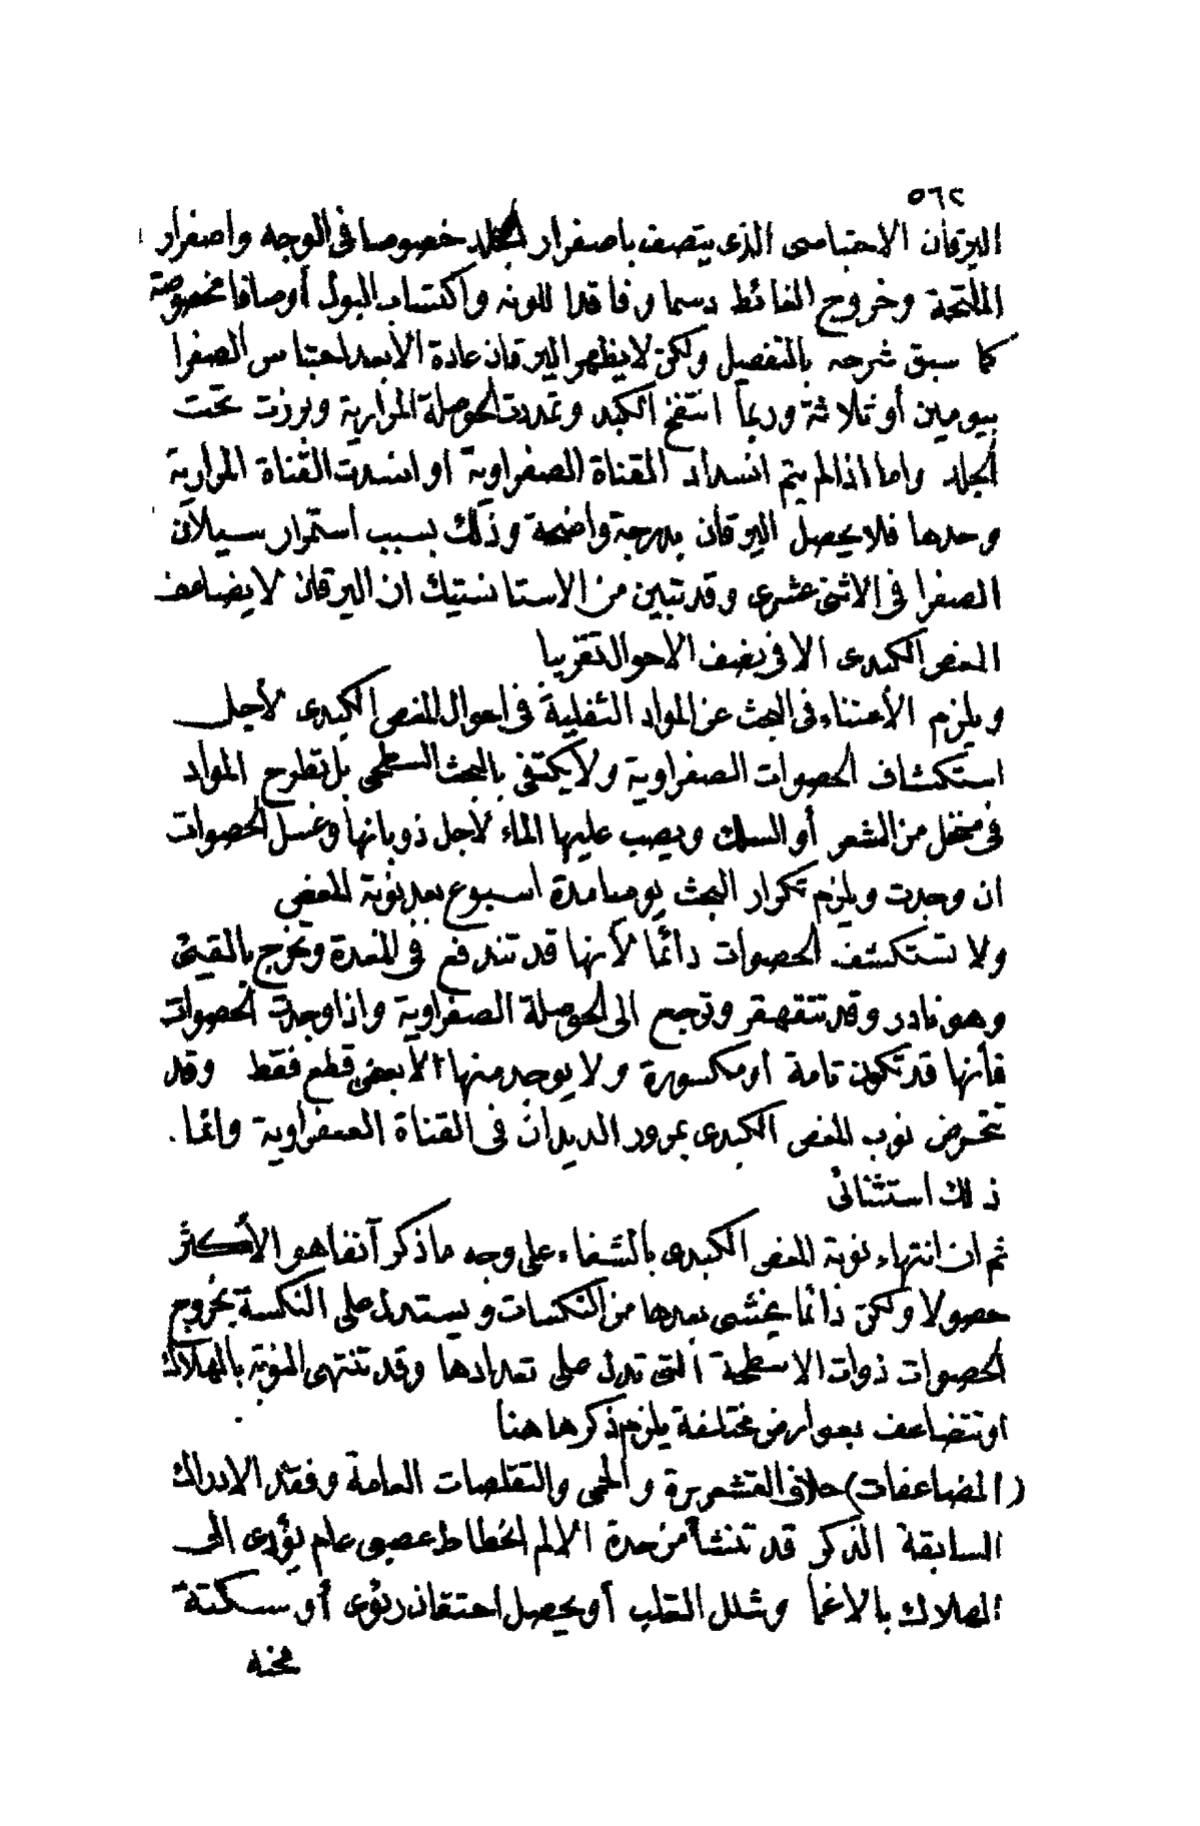 ٥٦٢
اليرقان الاحتباسى الذى يتصف باصفرار الجلد خصوصا فى الوجه واصفرار
الملتحمة وخروج الغائط دسما وفاقدا للونه واكتساب البول أوصافا مخصوصة
كما سبق شرحه بالتفصيل ولكن لا يظهر اليرقان عادة الا بعد احتباس الصفرا
بيومين أو ثلاثة وربما انتفخ الكبد وتمددت الحوصلة المرارية وبرزت تحت
الجلد واما اذا لم يتم انسداد القناة الصفراوية او انسدت القناة المرارية
وحدها فلا يحصل اليرقان بدرجة واضحة وذلك بسبب استمرار سيلان
الصفرا فى الاثنى عشرى وقد تبين من الاستانستيك ان اليرقان لا يضاعف
المغص الكبدى الا فى نصف الاحوال تقريبا
ويلزم الأعتناء فى البحث عن المواد الثفلية فى احوال المغص الكبدى لأجل
استكشاف الحصوات الصفراوية ولا يكتفى بالبحث السطحى بل تطرح المواد
فى منخل من الشعر أو السلك ويصب عليها الماء لأجل ذوبانها وغسل الحصوات
ان وجدت ويلزم تكرار البحث يوميا مدة اسبوع بعد نوبة المغص
ولا تستكشف الحصوات دائما لأنها قد تندفع فى المعدة وتخرج بالقيئ
وهو نادر وقد تتقهقر وترجع الى الحوصلة الصفراوية واذا وجدت الحصوات
فأنها قد تكون تامة او مكسورة ولا يوجد منها الا بعض قطع فقط وقد
تتحرض نوب المغص الكبدى بمرور الديدان فى القناة الصفراوية وانما
ذلك استثنائى
ثم ان انتهاء نوبة المغص الكبدى بالشفاء على وجه ما ذكر آنفا هو الأكثر
حصولا ولكن دائما يخشى بعدها من النكسات ويستدل على النكسة بخروج
الحصوات ذوات الاسطحة التى تدل على تعدادها وقد تنتهى النوبة بالهلاك
او تتضاعف بعوارض مختلفة يلزم ذكرها هنا
(المضاعفات) خلاف القشعريرة والحمى والتقلصات العامة وفقد الادراك
السابقة الذكر قد تنشأ من حدة الالم انحطاط عصبى عام يؤدى الى
الهلاك بالاغما وشلل القلب أو يحصل احتقان رئوى أو سكتة
مخية